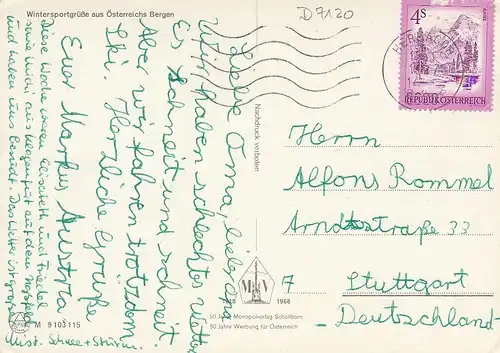 Wintersportgrüße aus Österreichs Bergen
D 7120
4S
REPUBLIK ÖSTERREICH
Liebe Oma, lieber Opa
Wir haben schlechtes Wetter
Es schneit und schneit.
Aber wir fahren trotzdem
Ski. Herzliche Grüße
Euer Markus
Diese Woche waren Elisabeth und Friedel
aus Klagenfurt auf dem
und haben uns besucht. Das Wetter ist
Mist. Schnee + Sturm.
Nachdruck verboten
Herrn
Alfons Rommel
Arndtstraße 33
7 Stuttgart
Deutschland
MV
1918 1968
50 Jahre Monopolverlag Schöllhorn
50 Jahre Werbung für Österreich
M 9 103 115